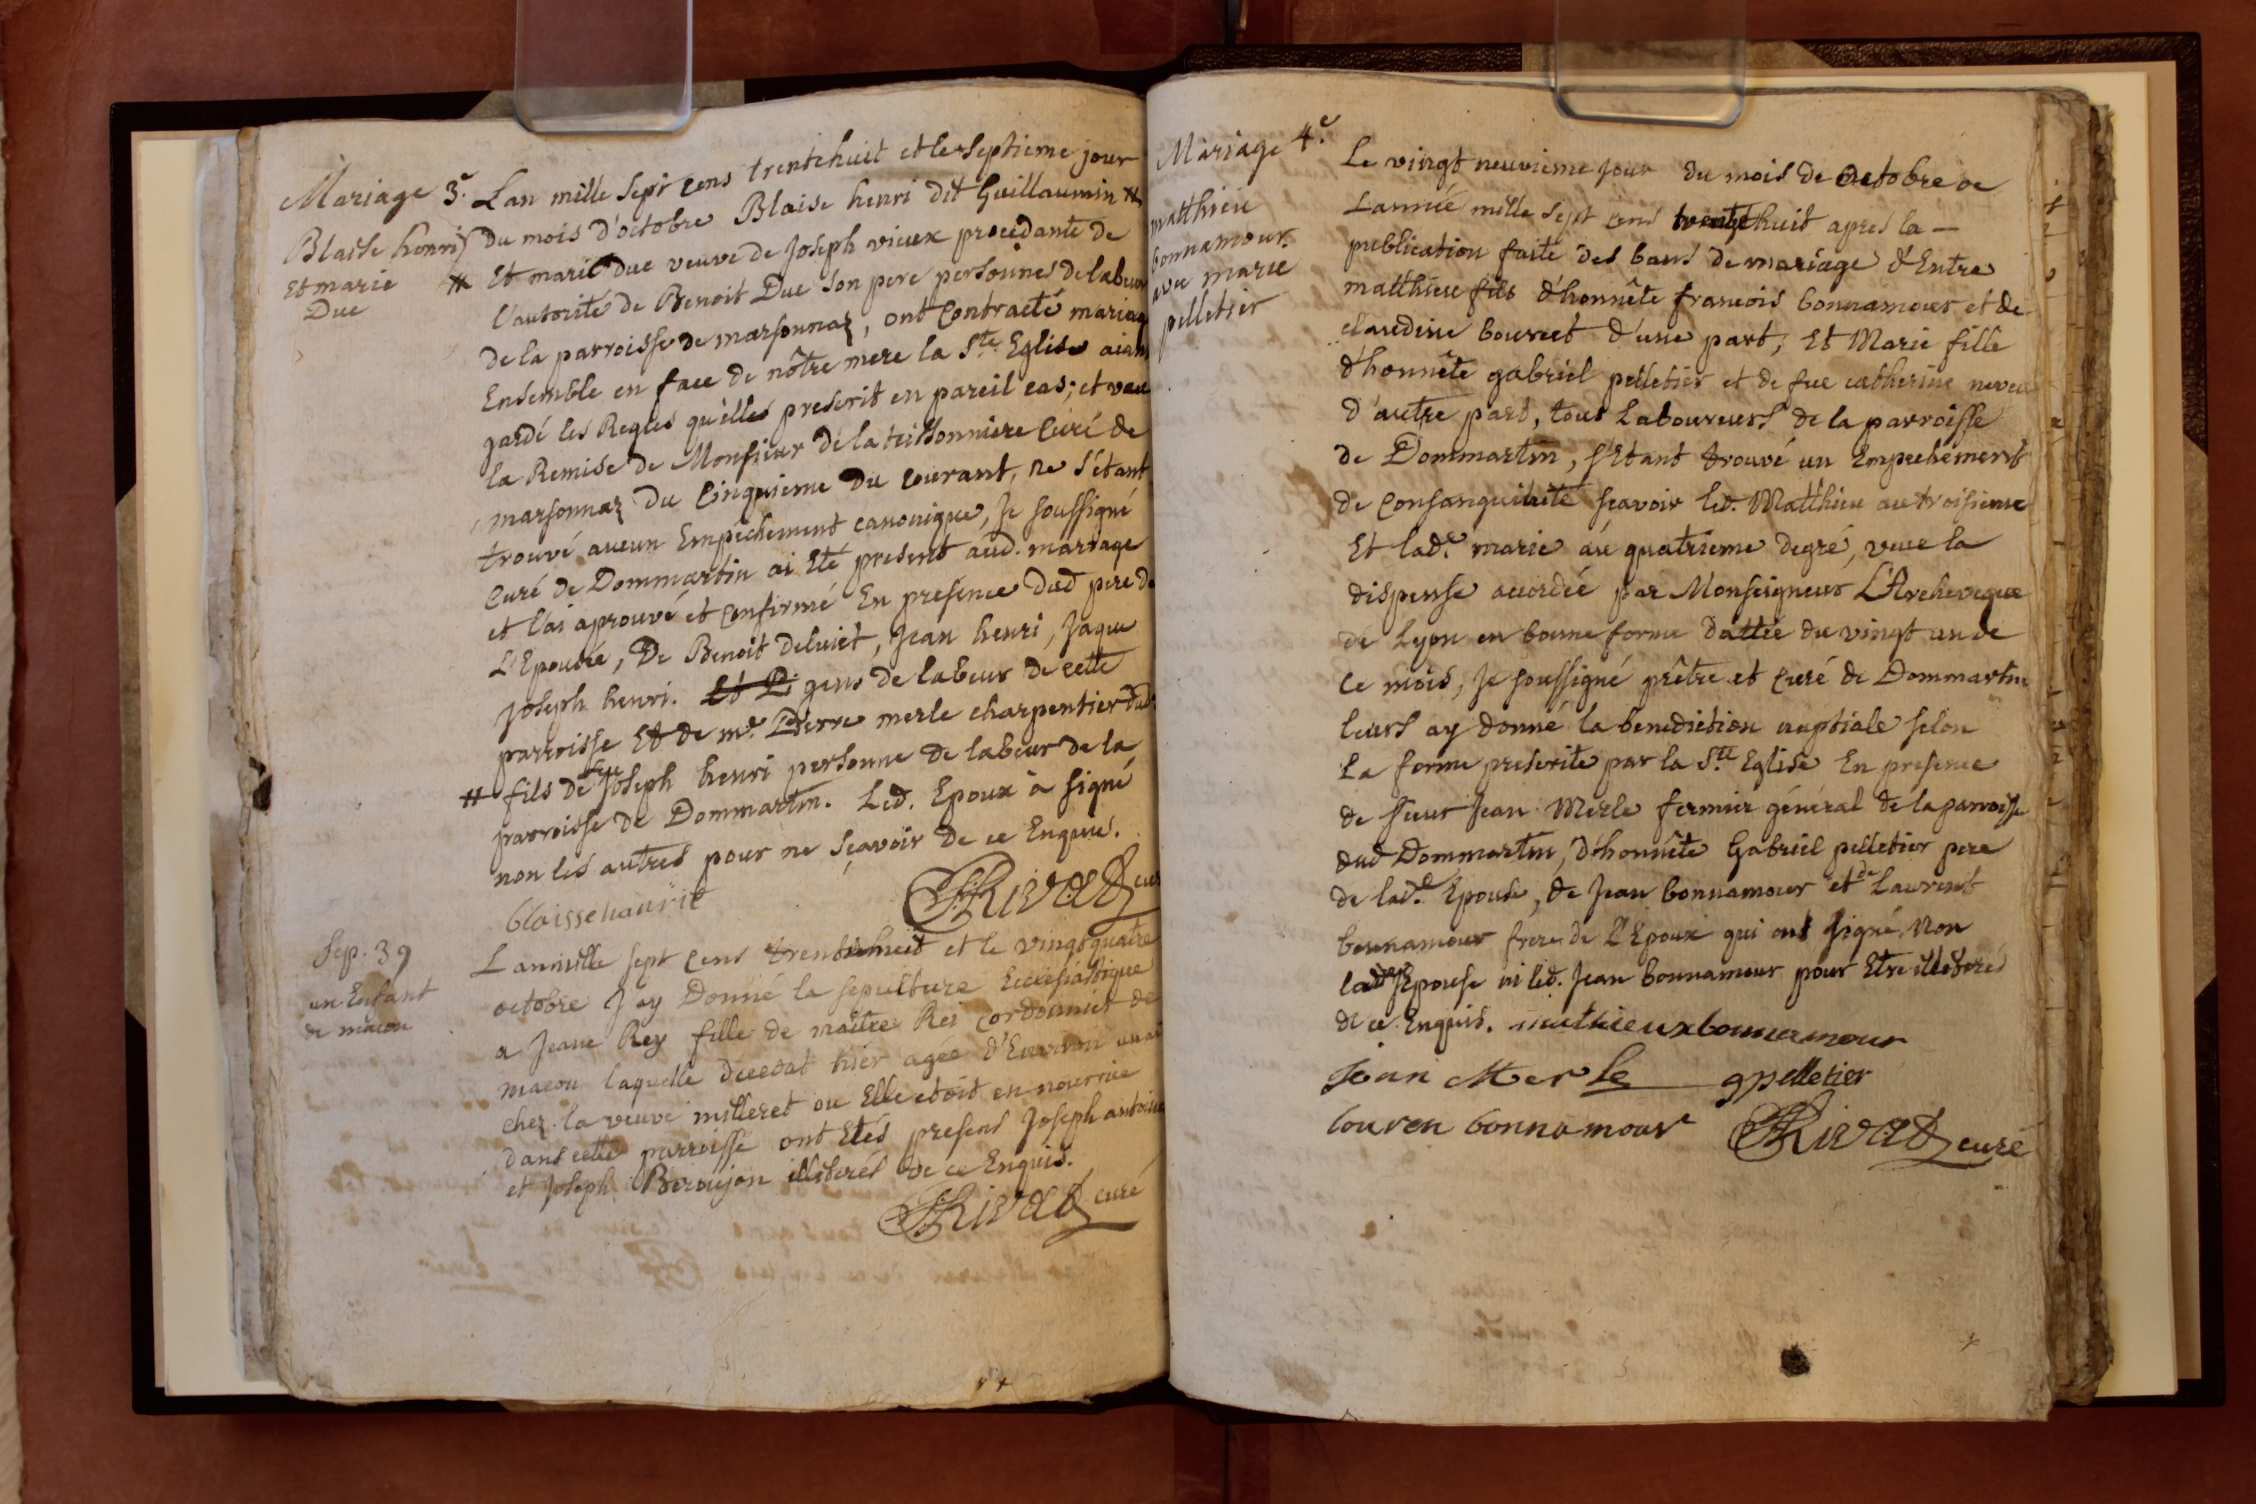 Mariage 3.e
Blaise henri
Et marie
Due
Lan mille sept cens trentehuit et le septieme jour
du mois d'octobre Blaise henri dit Guillaumin #
# Et marie Due veuve de Joseph vieux procedante de
l'autorité de Benoit Due son pere personnes de labeur
de la parroisse de marsonnaz, ont contracté mariage
Ensemble en face de nôtre mere la Ste Eglise aiant
gardé les Regles qu'elles prescrit en pareil cas; et vue
la Remise de Monsieur de la teissonniere Curé de
marsonnaz du Cinquieme du courant, ne s'étant
trouvé aucun Empêchement canonique, Je soussigné
Curé de Dommartin ai Eté present aud. mariage
et l'ai aprouvé et confirmé En presence dud pere de
L'Epouse, De Benoit , Jean henri, Jaque
Joseph henri. gens de labeur de cette
parroisse Et de me. Pierre merle charpentier dud.
# fils de feu Joseph henri personne de labeur de la
parroisse de Dommartin. Led. Epoux à signé
non les autres pour ne sçavoir de ce Enquis.
blaisse
Rivat curé
Sep. 39
un Enfant
de mâcon
Lanmille sept cens trentehuit et le vingtquatre
octobre J ay Donné la sepulture Ecclesiastique
a Jeane Rey fille de maître Rei cordonnier de
macon laquelle deceda hier agée d'Environ
chez la veuve milleret ou Elle etoit en nourrice
dans cette parroisse ont Etés presens Joseph antoine
et Joseph Beroujon illiterés de ce Enquis.
Rivat curé
Mariage 4.e
matthieu
bonnamour
avec marie
pelletier
Le vingt neuvieme jour du mois de octobre de
Lannée mille sept cens trentehuit apres la —
publication faite des bans de mariage d'Entre
matthieu fils d'honnête francois bonnamour et de
claudine bourcet d'une part, Et Marie fille
d'honnête gabriel pelletier et de fue catherine neveu
d'autre part, tous Laboureurs de la parroisse
de Dommartin, s'Etant trouvé un Empechement
de Consanguinité sçavoir led. Matthieu au troisieme
Et lad.e marie au quatrieme degré, veue la
dispense accordée par Monseigneur L'Archeveque
de Lyon en bonne forme dattée du vingt un de
ce mois, Je soussigné prêtre et Curé de Dommartin
leurs ay donné la benediction nuptiale selon
La forme prescrite par la Ste Eglise En presence
de sieur Jean Merle fermier général de la parroisse
dud Dommartin, d'honnête Gabriel pelletier pere
de lad.e Epouse, de Jean bonnamour et de Laurent
bonnamour frere de l'Epoux qui ont signé Non
lad.e Epouse ni led. Jean bonnamour pour Etre illiterés
de ce Enquis. mathieuxbonnamour
Jean Merle gpelletier
louren bonnamour Rivat curé